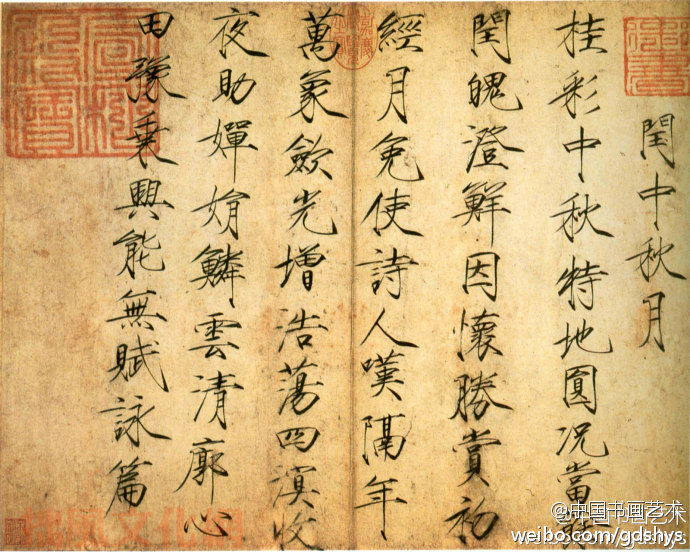 閏中秋月
桂彩中秋特地圓況當
閏魄澄鮮因懷勝賞初
經月免使詩人嘆隔年
萬象歛光增浩蕩四溟收
夜助嬋娟鱗雲清廓心
田豫乘興能無賦詠篇
@中国书画艺术
weibo.com/gdshys